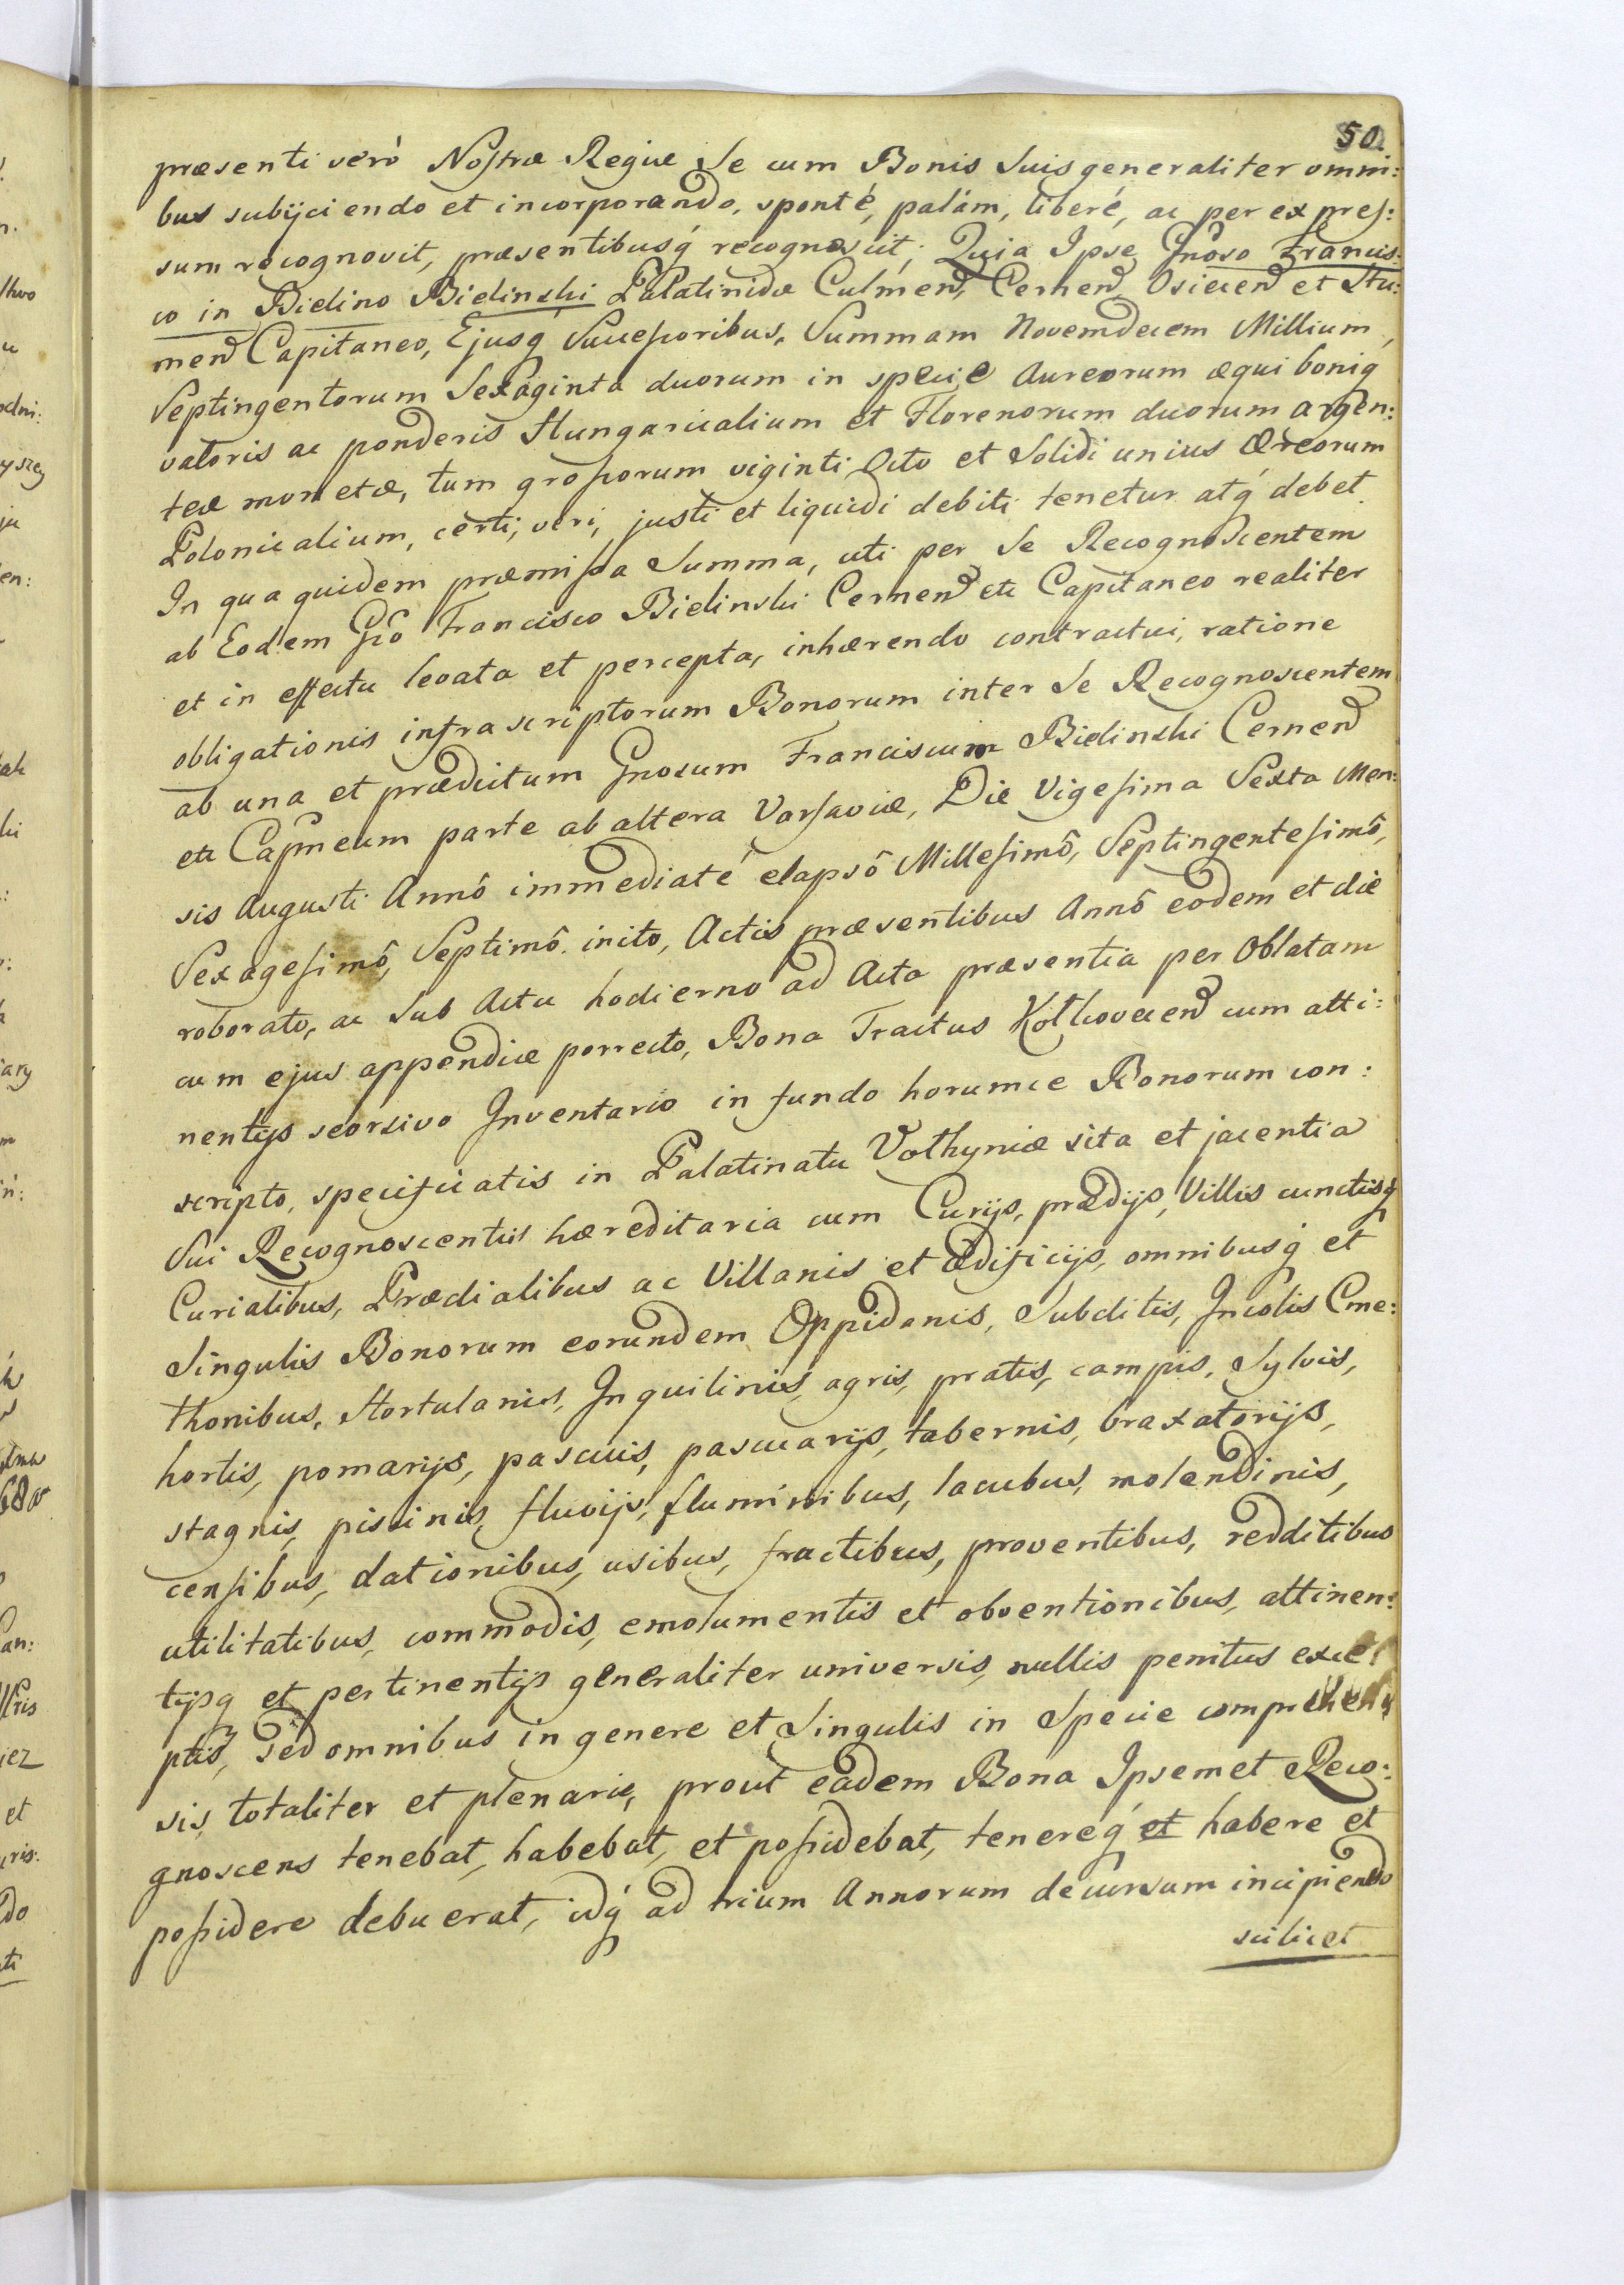 50
præsenti verò Nostræ Regiæ Se cum Bonis Suis generaliter omni:
bus subijciendo et incorporando, sponté, palàm, liberé, ac per expres:
sum recognovit, præsentibusq́ recognoscit, Quia Ipse Gnoso Francis:
co in Bielino Bielinski Palatinidæ Culmen̄, Cernen̄, Osiecen̄ et Stu:
men̄ Capitaneo, Ejusq́ Successoribus, Summam Novemdecem Millium,
Septingentorum Sexaginta duorum in specie Aureorum æqui boniq
valoris ac ponderis Hungaricalium et Florenorum duorum argen:
teæ monetæ, tum grossorum viginti Octo et Solidi unius Æreorum
Polonicalium, certi, veri, justi et liquidi debiti tenetur atq́ debet
In qua quidem præmissa Summa, uti per Se Recognoscentem
ab Eodem Gso Francisco Bielinski Cernen̄ etc Capitaneo realitèr
et in effectu levata et percepta, inhærendo contractui, ratione
obligationis infrascriptorum Bonorum inter Se Recognoscentem
ab una et prædictum Gnosum Franciscum Bielinski Cernen̄
etc Capneum parte ab altera Varsaviæ, Die Vigesima Sexta Men:
sis Augusti Annô immediaté elapsô Millesimô, Septingentesimô,
Sexagesimô, Septimô inito, Actis præsentibus Annô eodem et die
roborato, ac Sub Actu hodierno ad Acta præsentia per Oblatam
cum ejus appendice porrecto, Bona Tractus Kotkovecen̄ cum atti:
nentijs seorsivo Inventario in fundo horumce Bonorum con:
scripto, specificatis in Palatinatu Volhyniæ sita et jacentia
Sui Recognoscentis hæreditaria cum Curijs, prædijs, Villis cunctisq́
Curialibus, Prædialibus ac Villanis et ædificijs, omnibusq́ et
Singulis Bonorum eorundem Oppidanis, Subditis, Incolis Cme:
thonibus, Hortulanis, Inquilinis, agris, pratis, campis, Sylvis,
hortis, pomarijs, pascuis, pascuarijs, tabernis, braxatorijs,
stagnis, piscinis, fluvijs, fluminibus, lacubus, molendinis,
censibus, dationibus, usibus, fructibus, proventibus, redditibus
utilitatibus, commodis, emolumentis et obventionibus, attinen:
tijsq et pertinentijs generaliter universis, nullis penitus exce
ptis, sed omnibus in genere et Singulis in Specie comprehen
sis, totaliter et plenarie, prout eadem Bona Ipsemet Reco:
gnoscens tenebat, habebat, et possidebat, tenereq́ et habere et
possidere debuerat, idq́ ad trium Annorum decursum incipiendo
scilicet